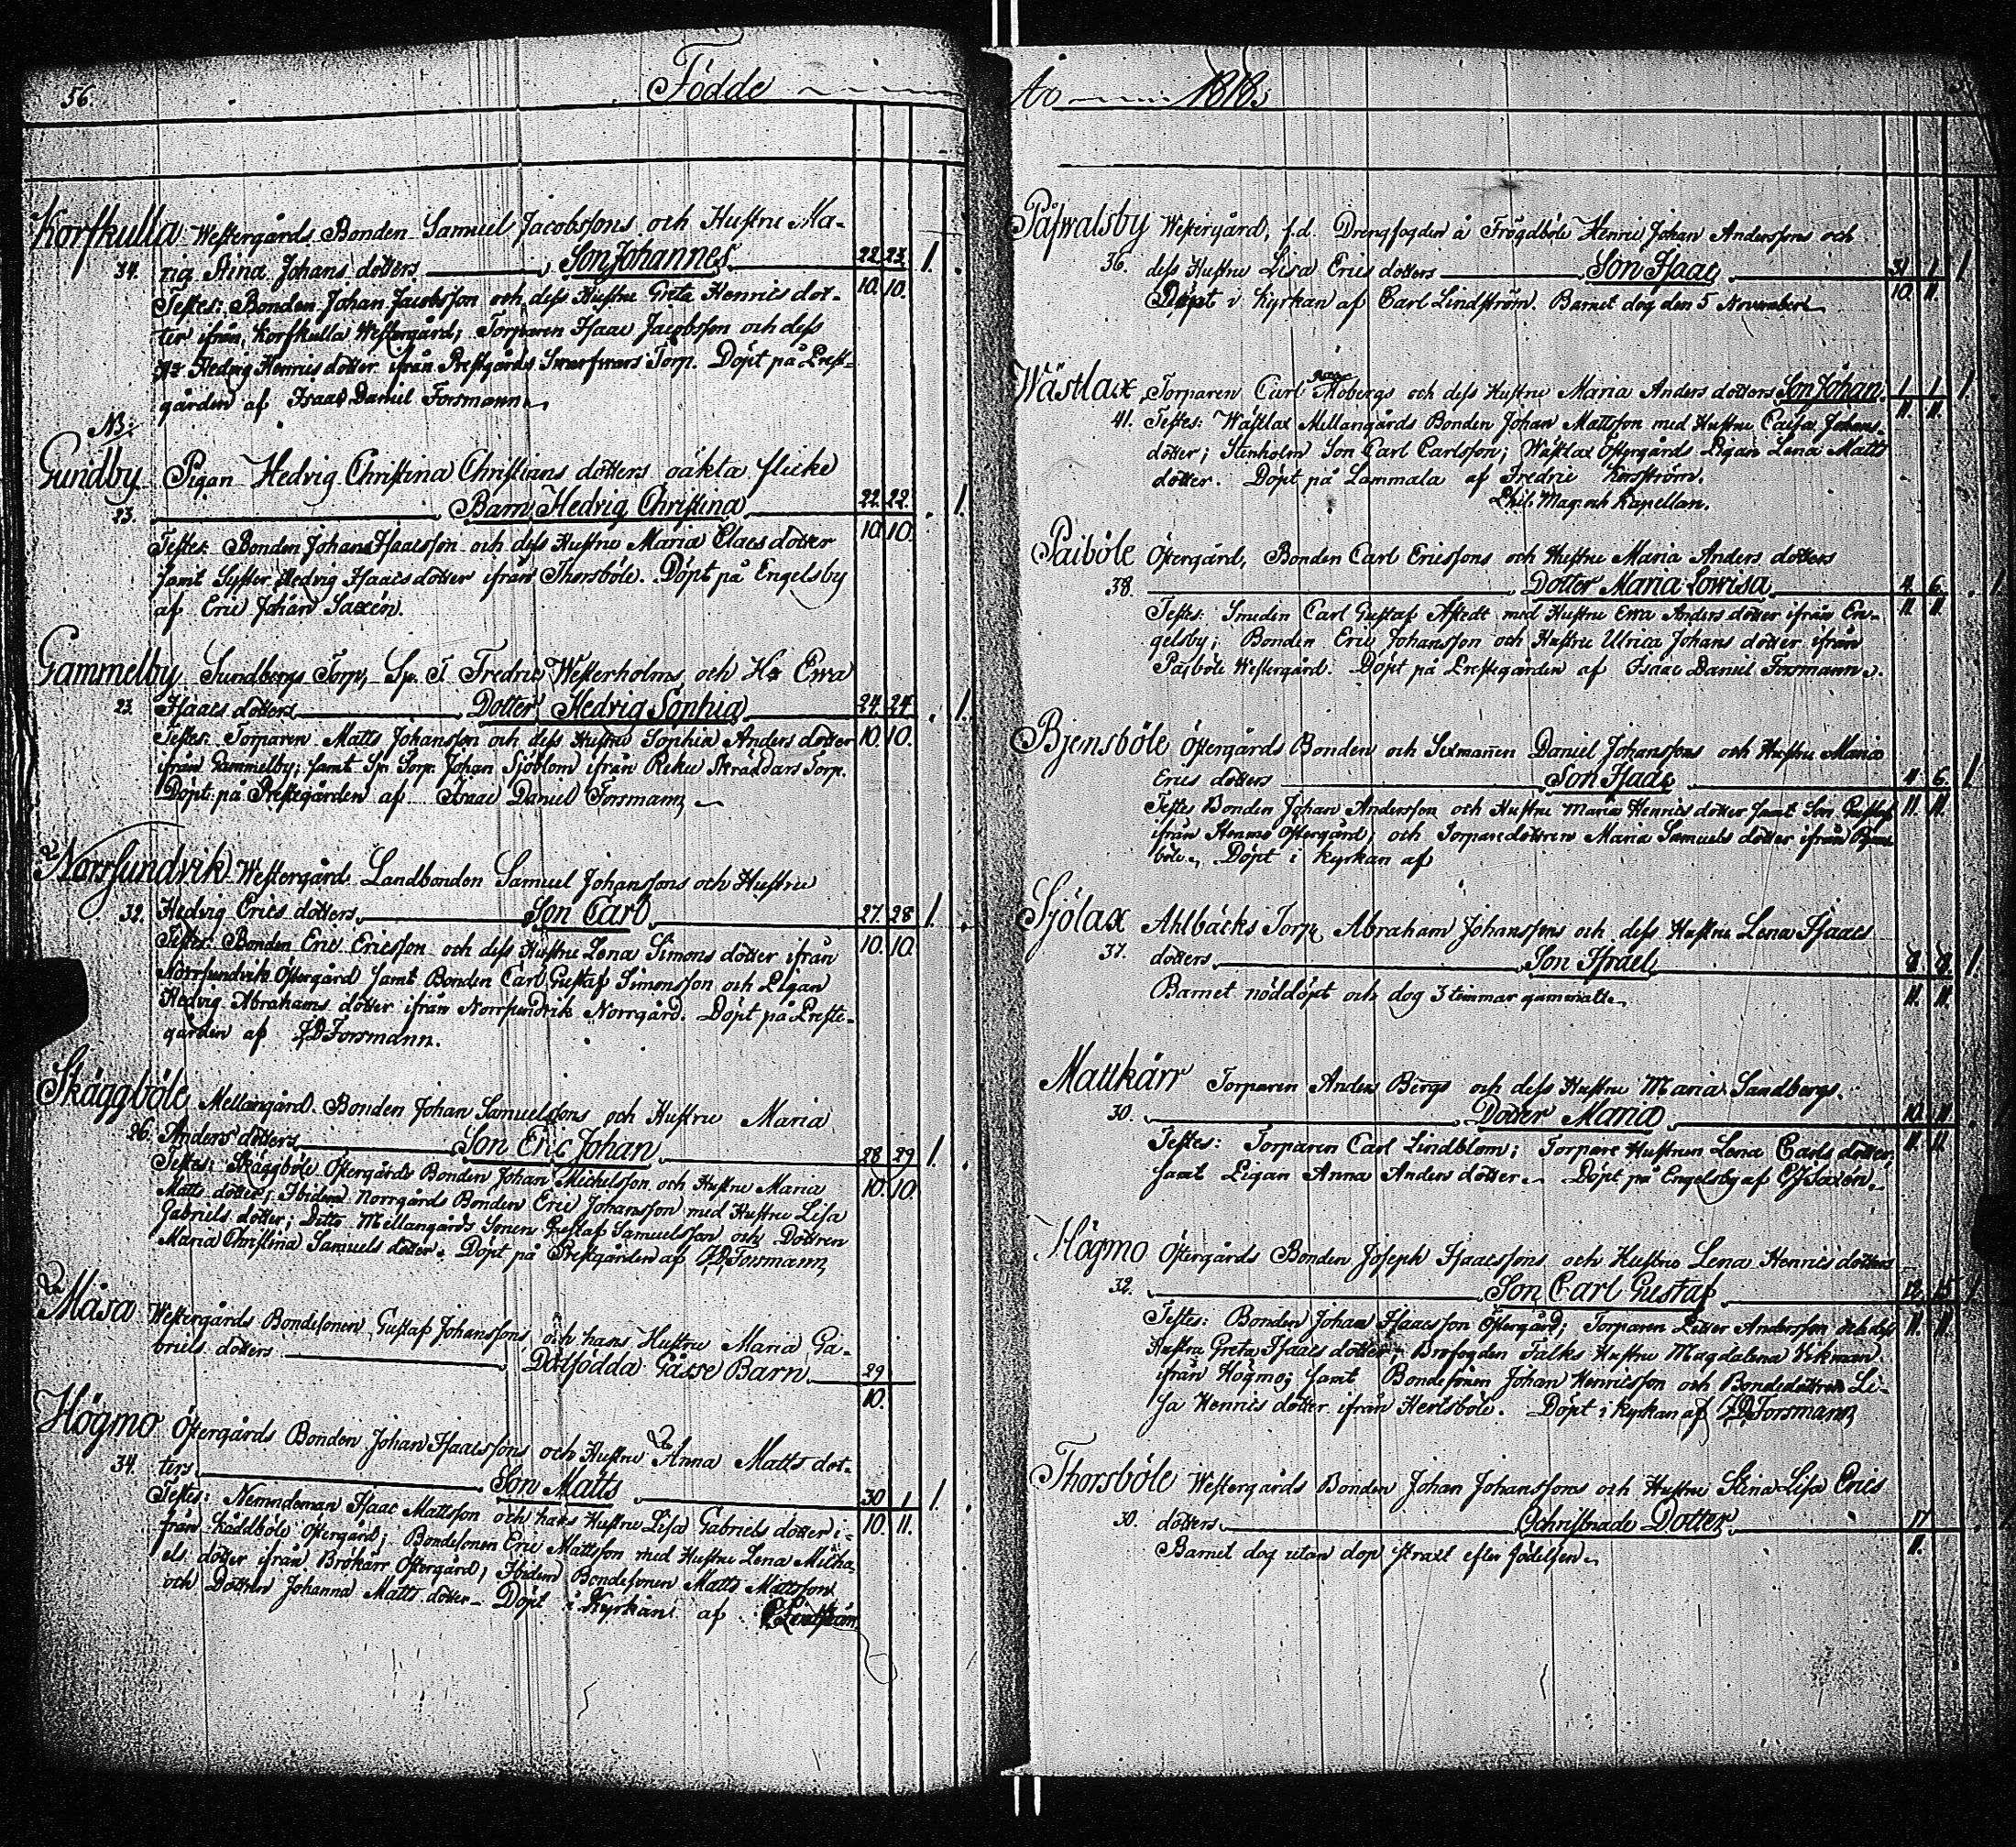 56. Födde
Korfkulla Westergårds Bonden Samuel Jacobssons och Hustru Ma-
34. ria Stina Johans dotters Son Johannes 22. 23. 1.
Testes: Bonden Johan Jacobsson och dess Hustru Greta Henrics dot- 10. 10.
ter ifrån Korfkulla Westergård; Torparen Isaac Jacobsson och dess
Hu Hedvig Henrics dotter ifrån Prestgårds Torp. Döpt på Prest-
gården af Isaac Daniel Forsmann.
NB:
Gundby Pigan Hedvig Christina Christians dotters oäkta flicke
23. Barn Hedvig Christina 22. 22. 1.
Testes: Bonden Johan Isaacsson och dess Hustru Maria Claes dotter 10. 10.
samt Syster Hedvig Isaacs dotter ifrån Thorsböle. Döpt på Engelsby
af Eric Johan Saxén.
Gammelby Sundbergs Torp, Sp. T. Fredric Westerholms och Hu Ewa
23. Isaacs dotters Dotter Hedvig Sophia 24. 24. 1.
Testes: Torparen Matts Johansson och dess Hustru Sophia Anders dotter 10. 10.
ifrån Gammelby; samt Sp. Torp. Johan Sjöblom ifrån Reku Skräddars Torp.
Döpt på Prestegården af Isaac Daniel Forsmann
Norrsundvik Westergård Landbonden Samuel Johanssons och Hustru
32. Hedvig Erics dotters Son Carl 27. 28. 1.
Testes: Bonden Eric Ericsson och dess Hustru Lena Simons dotter ifrån 10. 10.
Norrsundvik Östergård samt Bonden Carl Gustaf Simonsson och Pigan
Hedvig Abrahams dotter ifrån Norrsundvik Norrgård. Döpt på Preste-
gården af I.D. Forsmann.
Skäggböle Mellangård. Bonden Johan Samuelssons och Hustru Maria
26. Anders dotters Son Eric Johan 28. 29. 1.
Testes: Skäggböle Östergårds Bonden Johan Michelsson och Hustru Maria 10. 10.
Matts dotter; Ibidem Norrgårds Bonden Eric Johansson med Hustru Lisa
Gabriels dotter; Ditto Mellangårds Sonen Gustaf Samuelsson och Dottren
Maria Christina Samuels dotter. Döpt på Prestgården af I.D. Forsmann
Måsa Westergårds Bondesonen Gustaf Johanssons och hans Hustru Maria Ga-
briels dotters Dödfödda Gåsse Barn 29.
10.
Högmo Östergårds Bonden Johan Isaacssons och Hustru Anna Matts dot-
34. ters Son Matts 30 1 1.
Testes: Nemndeman Isaac Mattsson och hans Hustru Lisa Gabriels dotter i- 10. 11.
från Råddböle Östergård; Bondesonen Eric Mattsson med Hustru Lena Micha-
els dotter ifrån Brokärr Östergård; Ibidem Bondesonen Matts Mattsson
och Dottren Johanna Matts dotter. Döpt i Kyrkan af C Lindström
Åo 1818.
Påfwalsby Westergård, f.d. Drengfogden å Frögdböle Henric Johan Anderssons och
36. dess Hustru Lisa Erics dotters Son Isaac 31. 1. 1
Döpt i Kyrkan af Carl Lindström. Barnet dog den 5 November. 10. 11.
Wästlax Torparen Carl Mobergs och dess Hustru Maria Anders dotters Son Johan. 1. 1. 1
41. Testes: Wästlax Mellangårds Bonden Johan Mattsson med Hustru Caisa Johans- 11. 11.
dotter; Stenholm Son Carl Carlsson; Wästlax Östergårds Pigan Lena Matts
dotter. Döpt på Lammala af Fredric Korsström.
Phil. Mag. och Kapellan.
Paiböle Östergård, Bonden Carl Ericssons och Hustru Maria Anders dotters
38. Dotter Maria Lowisa 4. 6. 1.
Testes: Smeden Carl Gustaf Åstedt med Hustru Ewa Anders dotter ifrån En- 11. 11.
gelsby; Bonden Eric Johansson och Hustru Ulrica Johans dotter ifrån
Paiböle Westergård. Döpt på Prestegården af Isaac Daniel Forsmann.
Bjensböle Östergårds Bonden och Sexmannen Daniel Johanssons och Hustru Maria
Erics dotters Son Isaac 4. 6. 1
Testes Bonden Johan Andersson och Hustru Maria Henrics dotter samt Son Gustaf 11. 11.
ifrån Hemmo Östergård; och Torparedottren Maria Samuels dotter ifrån Bjens-
böle. Döpt i Kyrkan af
Sjölax Ahlbäcks Torp, Abraham Johanssons och dess Hustru Lena Isaacs
37. dotters Son Israel 8. 8. 1
Barnet nöddöpt och dog 3 timmar gammalt. 11. 11.
Mattkärr Torparen Anders Bergs och dess Hustru Maria Sandbergs.
30. Dotter Maria 10. 11.
Testes: Torparen Carl Lindblom; Torpare Hustrun Lena Carls dotter, 11. 11.
samt Pigan Anna Anders dotter. Döpt på Engelsby af E J Saxén.
Högmo Östergårds Bonden Joseph Isaacssons och Hustru Lena Henrics dotters
32. Son Carl Gustaf 12. 15. 1
Testes: Bonden Johan Isaacsson Östergård; Torparen Petter Andersson och dess 11. 11.
Hustru Greta Isaacs dotter; Brofogden Falks Hustru Magdalena Wikman
ifrån Högmo; samt Bondesonen Johan Henricsson och Bondedottren Li-
sa Henrics dotter ifrån Hertsböle. Döpt i Kyrkan af I.D. Forsmann
Thorsböle Westergårds Bonden Johan Johanssons och Hustru Stina Lisa Erics
30. dotters Ochristnade Dotter 17
Barnet dog utan dop straxt efter födelsen. 11.